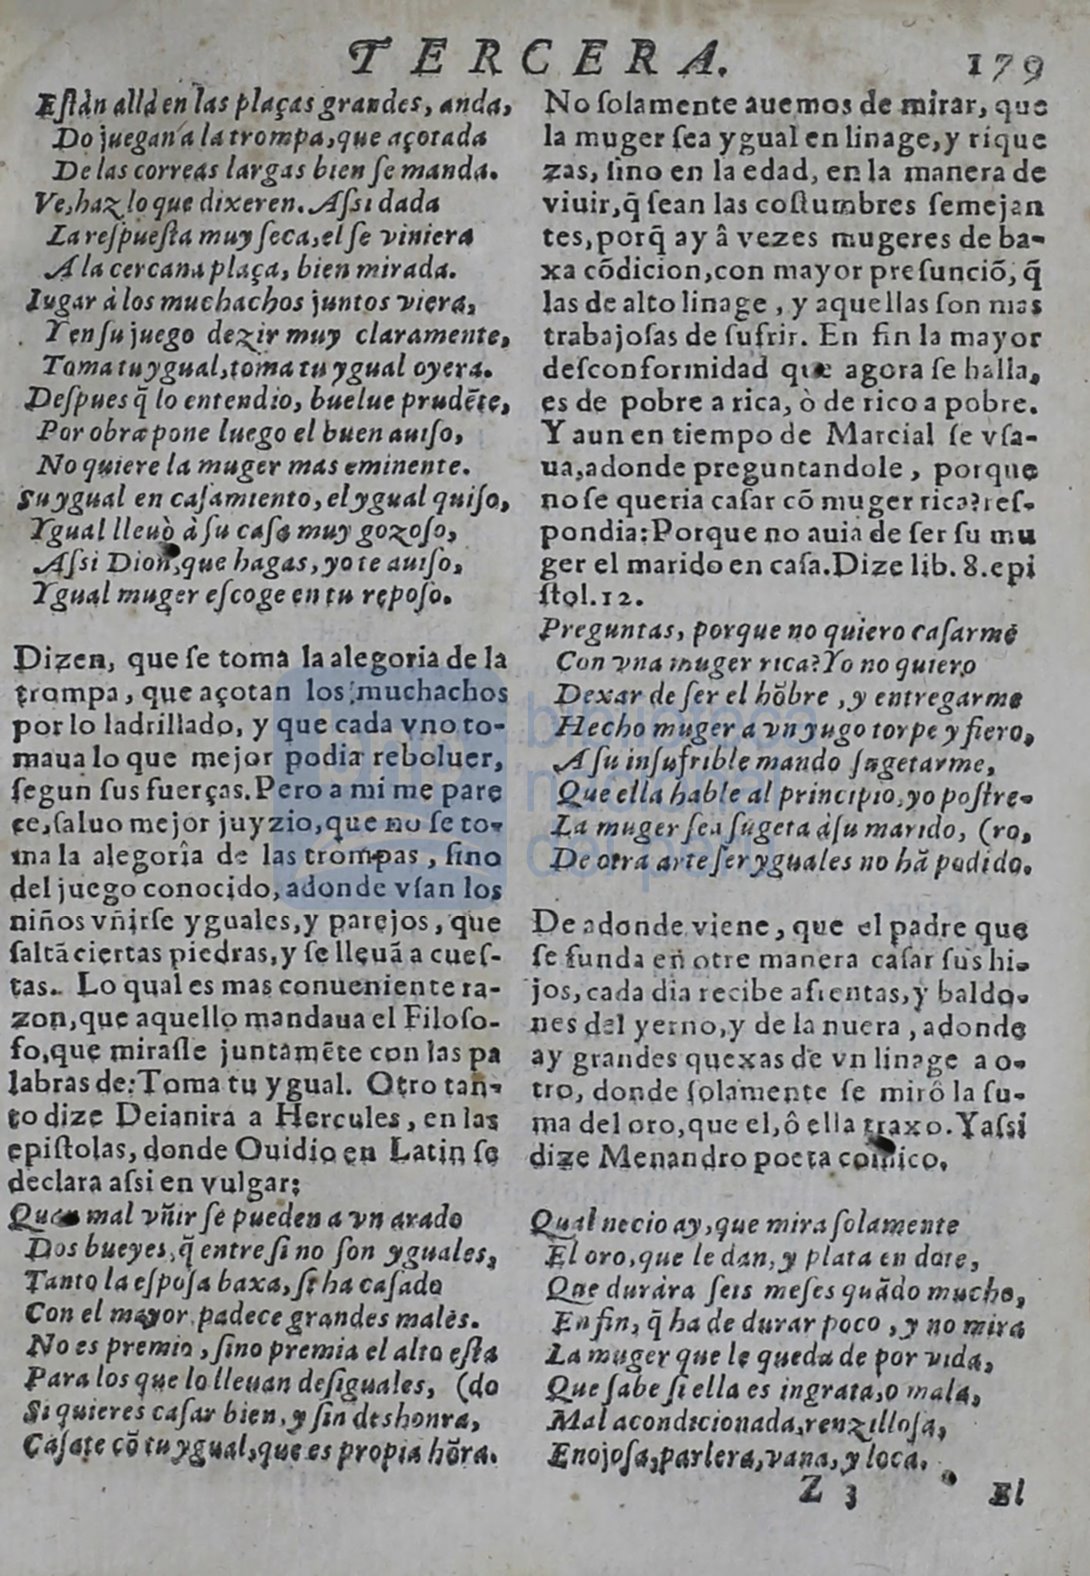 TERCERA. 179
Eſtàn allà en las plaças grandes, anda,
Do juegan a la trompa, que açotada
De las correas largas bien ſe manda.
Ve, haz lo que dixeren. Aſsi dada
La reſpueſta muy ſeca, el ſe viniera
A la cercana plaça, bien mirada.
Iugar à los muchachos juntos viera,
Y en ſu juego dezir muy claramente,
Toma tu ygual, toma tu ygual oyera.
Deſpues q̃ lo entendio, buelue prudẽte,
Por obra pone luego el buen auiſo,
No quiere la muger mas eminente.
Su ygual en caſamiento, el ygual quiſo,
Ygual lleuò à ſu caſa muy gozoſo,
Aſsi Dion, que hagas, yo te auiſo,
Ygual muger eſcoge en tu repoſo.
Dizen, que ſe toma la alegoria de la
trompa, que açotan los muchachos
por lo ladrillado, y que cada vno to-
maua lo que mejor podia reboluer,
ſegun ſus fuerças. Pero a mi me pare
ce, ſaluo mejor juyzio, que no ſe to-
ma la alegorîa de las trompas, ſino
del juego conocido, adonde vſan los
niños vñirſe yguales, y parejos, que
ſaltã ciertas piedras, y ſe lleuã a cueſ-
tas. Lo qual es mas conueniente ra-
zon, que aquello mandaua el Filoſo-
fo, que miraſſe juntamẽte con las pa
labras de: Toma tu ygual. Otro tan-
to dize Deianira a Hercules, en las
epiſtolas, donde Ouidio en Latin ſe
declara aſsi en vulgar:
Quan mal vñir ſe pueden a vn arado
Dos bueyes, q̃ entre ſi no ſon yguales,
Tanto la eſpoſa baxa, ſi ha caſado
Con el mayor padece grandes males.
No es premio, ſino premia el alto eſta
Para los que lo lleuan deſiguales, (do
Si quieres caſar bien, y ſin deshonra,
Caſate cõ tu ygual, que es propia hõra.
No ſolamente auemos de mirar, que
la muger ſea ygual en linage, y rique
zas, ſino en la edad, en la manera de
viuir, q̃ ſean las coſtumbres ſemejan
tes, porq̃ ay â vezes mugeres de ba-
xa cõdicion, con mayor preſunciõ, q̃
las de alto linage, y aquellas ſon mas
trabajoſas de ſufrir. En fin la mayor
deſconformidad que agora ſe halla,
es de pobre a rica, ò de rico a pobre.
Y aun en tiempo de Marcial ſe vſa-
ua, adonde preguntandole, porque
no ſe queria caſar cõ muger rica? reſ-
pondia: Porque no auia de ſer ſu mu
ger el marido en caſa. Dize lib. 8. epi
ſtol. 12.
Preguntas, porque no quiero caſarme
Con vna muger rica? Yo no quiero
Dexar de ſer el hõbre, y entregarme
Hecho muger a vn yugo torpe y fiero,
A ſu inſufrible mando ſugetarme,
Que ella hable al principio, yo poſtre-
La muger ſea ſugeta à ſu marido, (ro,
De otra arte ſer yguales no hã podido.
De adonde viene, que el padre que
ſe funda en otre manera caſar ſus hi-
jos, cada dia recibe afrentas, y baldo-
nes del yerno, y de la nuera, adonde
ay grandes quexas de vn linage a o-
tro, donde ſolamente ſe mirô la ſu-
ma del oro, que el, ô ella traxo. Y aſsi
dize Menandro poeta comico.
Qual necio ay, que mira ſolamente
El oro, que le dan, y plata en dote,
Que durára ſeis meſes quãdo mucho,
En fin, q̃ ha de durar poco, y no mira
La muger que le queda de por vida,
Que ſabe ſi ella es ingrata, o mala,
Mal acondicionada, renzilloſa,
Enojoſa, parlera, vana, y loca.
Z 3 El
biblioteca
nacional
del perú